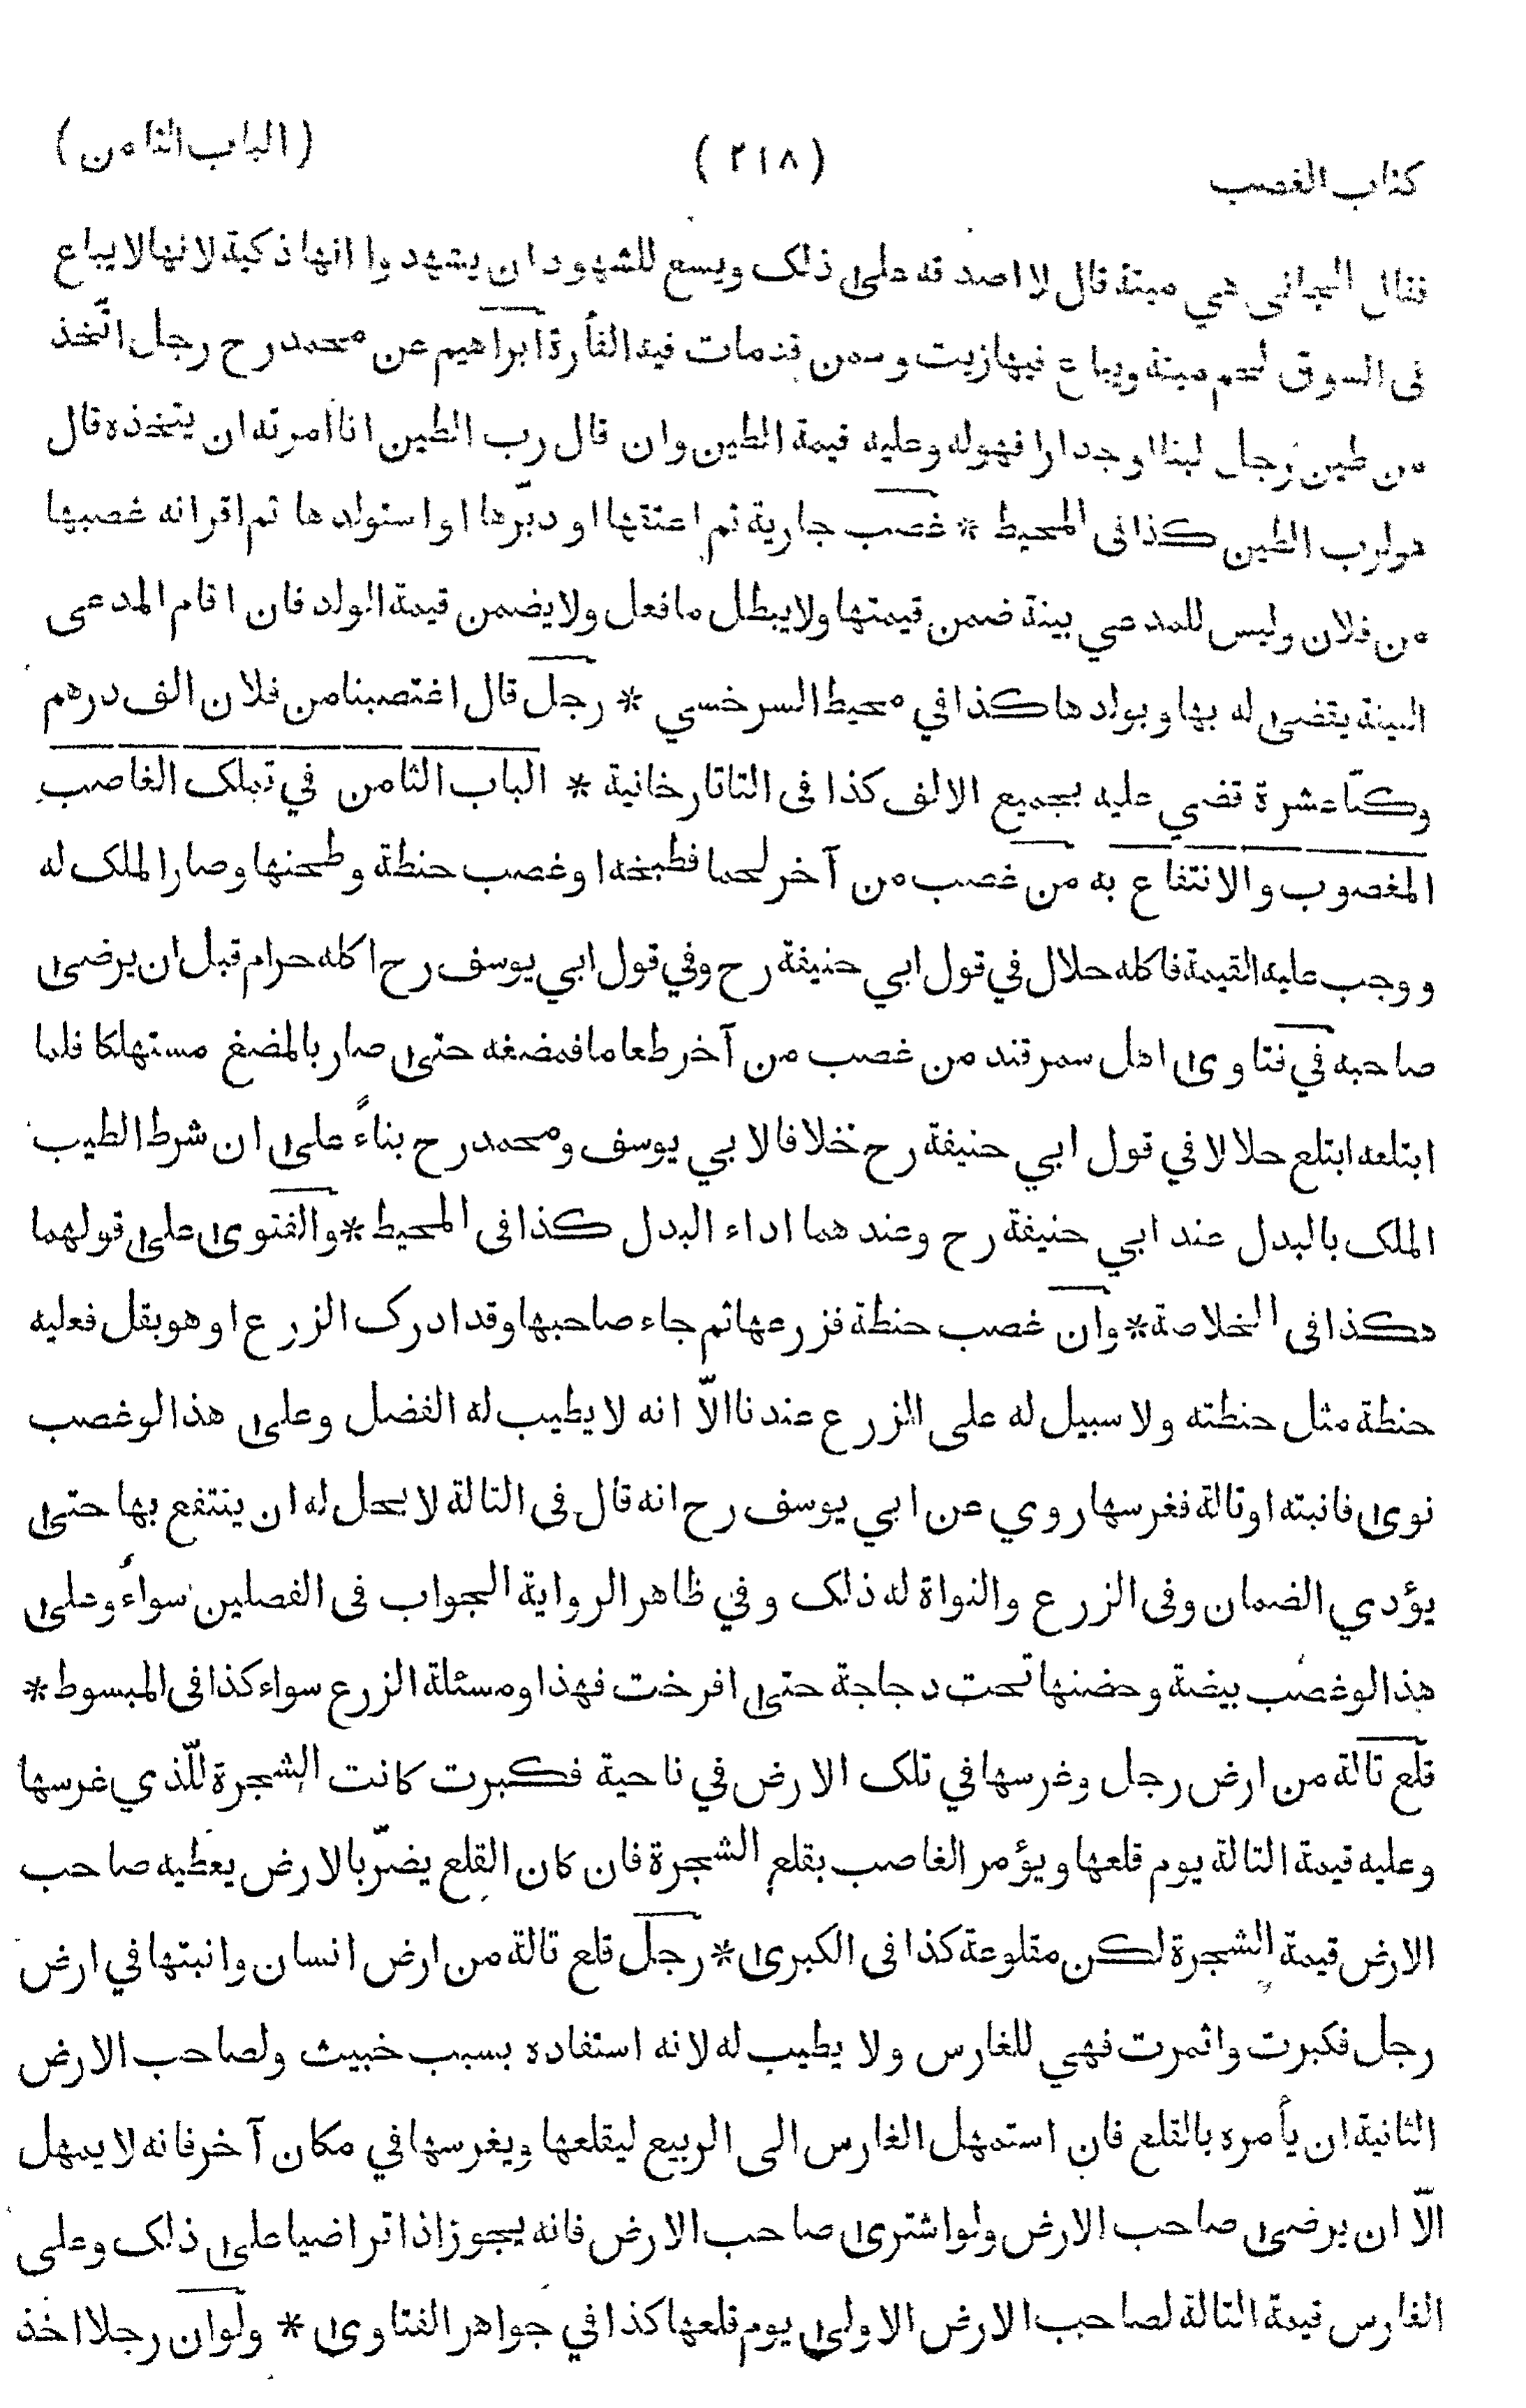 كتاب الغصب (٢١٨) (الباب الثامن)
فقال الجاني هي ميتة قال لا اصدقه على ذلك ويسع للشهود ان يشهدوا انها ذكية لانها لا يباع
فى السوق لحم ميتة ويباع فيها زيت وسمن قدمات فيه الفأرة ابراهيم عن محمد رح رجل اتّخذ
من طين رجل لبنا او جدارا فهوله وعليه قيمة الطين وان قال رب الطين انا امرته ان يتخذه قال
هولرب الطين كذا فى المحيط * غصب جارية ثم اعتقها او دبّرها او استولدها ثم اقرانه غصبها
من فلان وليس للمدعي بينة ضمن قيمتها ولا يبطل ما فعل ولا يضمن قيمة الولد فان اقام المدعى
البينة يقضى له بها وبولدها كذا في محيط السرخسي * رجل قال اغتصبنا من فلان الف درهم
وكنّا عشرة قضي عليه بجميع الالف كذا فى التاتارخانية * الباب الثامن في تملك الغاصب
المغصوب والانتفاع به من غصب من آخر لحما فطبخه او غصب حنطة وطحنها وصار الملك له
ووجب عليه القيمة فاكله حلال في قول ابي حنيفة رح وفي قول ابي يوسف رح اكله حرام قبل ان يرضى
صاحبه في فتاوى اهل سمرقند من غصب من آخر طعاما فمضغه حتى صار بالمضغ مستهلكا فلما
ابتلعه ابتلع حلالا في قول ابي حنيفة رح خلافا لابي يوسف ومحمد رح بناءً على ان شرط الطيب
الملك بالبدل عند ابي حنيفة رح وعندهما اداء البدل كذا فى المحيط * والفتوى على قولهما
هكذا فى الخلاصة * وان غصب حنطة فزرعها ثم جاء صاحبها وقد ادرك الزرع او هو بقل فعليه
حنطة مثل حنطته ولا سبيل له على الزرع عندنا الاّ انه لا يطيب له الفضل وعلى هذا لو غصب
نوى فانبته او تالة فغرسها روي عن ابي يوسف رح انه قال فى التالة لا يحل له ان ينتفع بها حتى
يؤدي الضمان وفى الزرع والنواة له ذلك وفي ظاهر الرواية الجواب فى الفصلين سواءً وعلى
هذا لو غصب بيضة وحضنها تحت دجاجة حتى افرخت فهذا ومسئلة الزرع سواء كذا فى المبسوط *
قلع تالة من ارض رجل وغرسها في تلك الارض في ناحية فكبرت كانت الشجرة للّذي غرسها
وعليه قيمة التالة يوم قلعها ويؤمر الغاصب بقلع الشجرة فان كان القلع يضرّ بالارض يعطيه صاحب
الارض قيمة الشجرة لكن مقلوعة كذا فى الكبرى * رجل قلع تالة من ارض انسان وانبتها في ارض
رجل فكبرت واثمرت فهي للغارس ولا يطيب له لانه استفاده بسبب خبيث ولصاحب الارض
الثانية ان يأمره بالقلع فان استمهل الغارس الى الربيع ليقلعها ويغرسها في مكان آخر فانه لا يمهل
الاّ ان يرضى صاحب الارض ولو اشترى صاحب الارض فانه يجوز اذا تراضيا على ذلك وعلى
الغارس قيمة التالة لصاحب الارض الاولى يوم قلعها كذا في جواهر الفتاوى * ولو ان رجلا اخذ